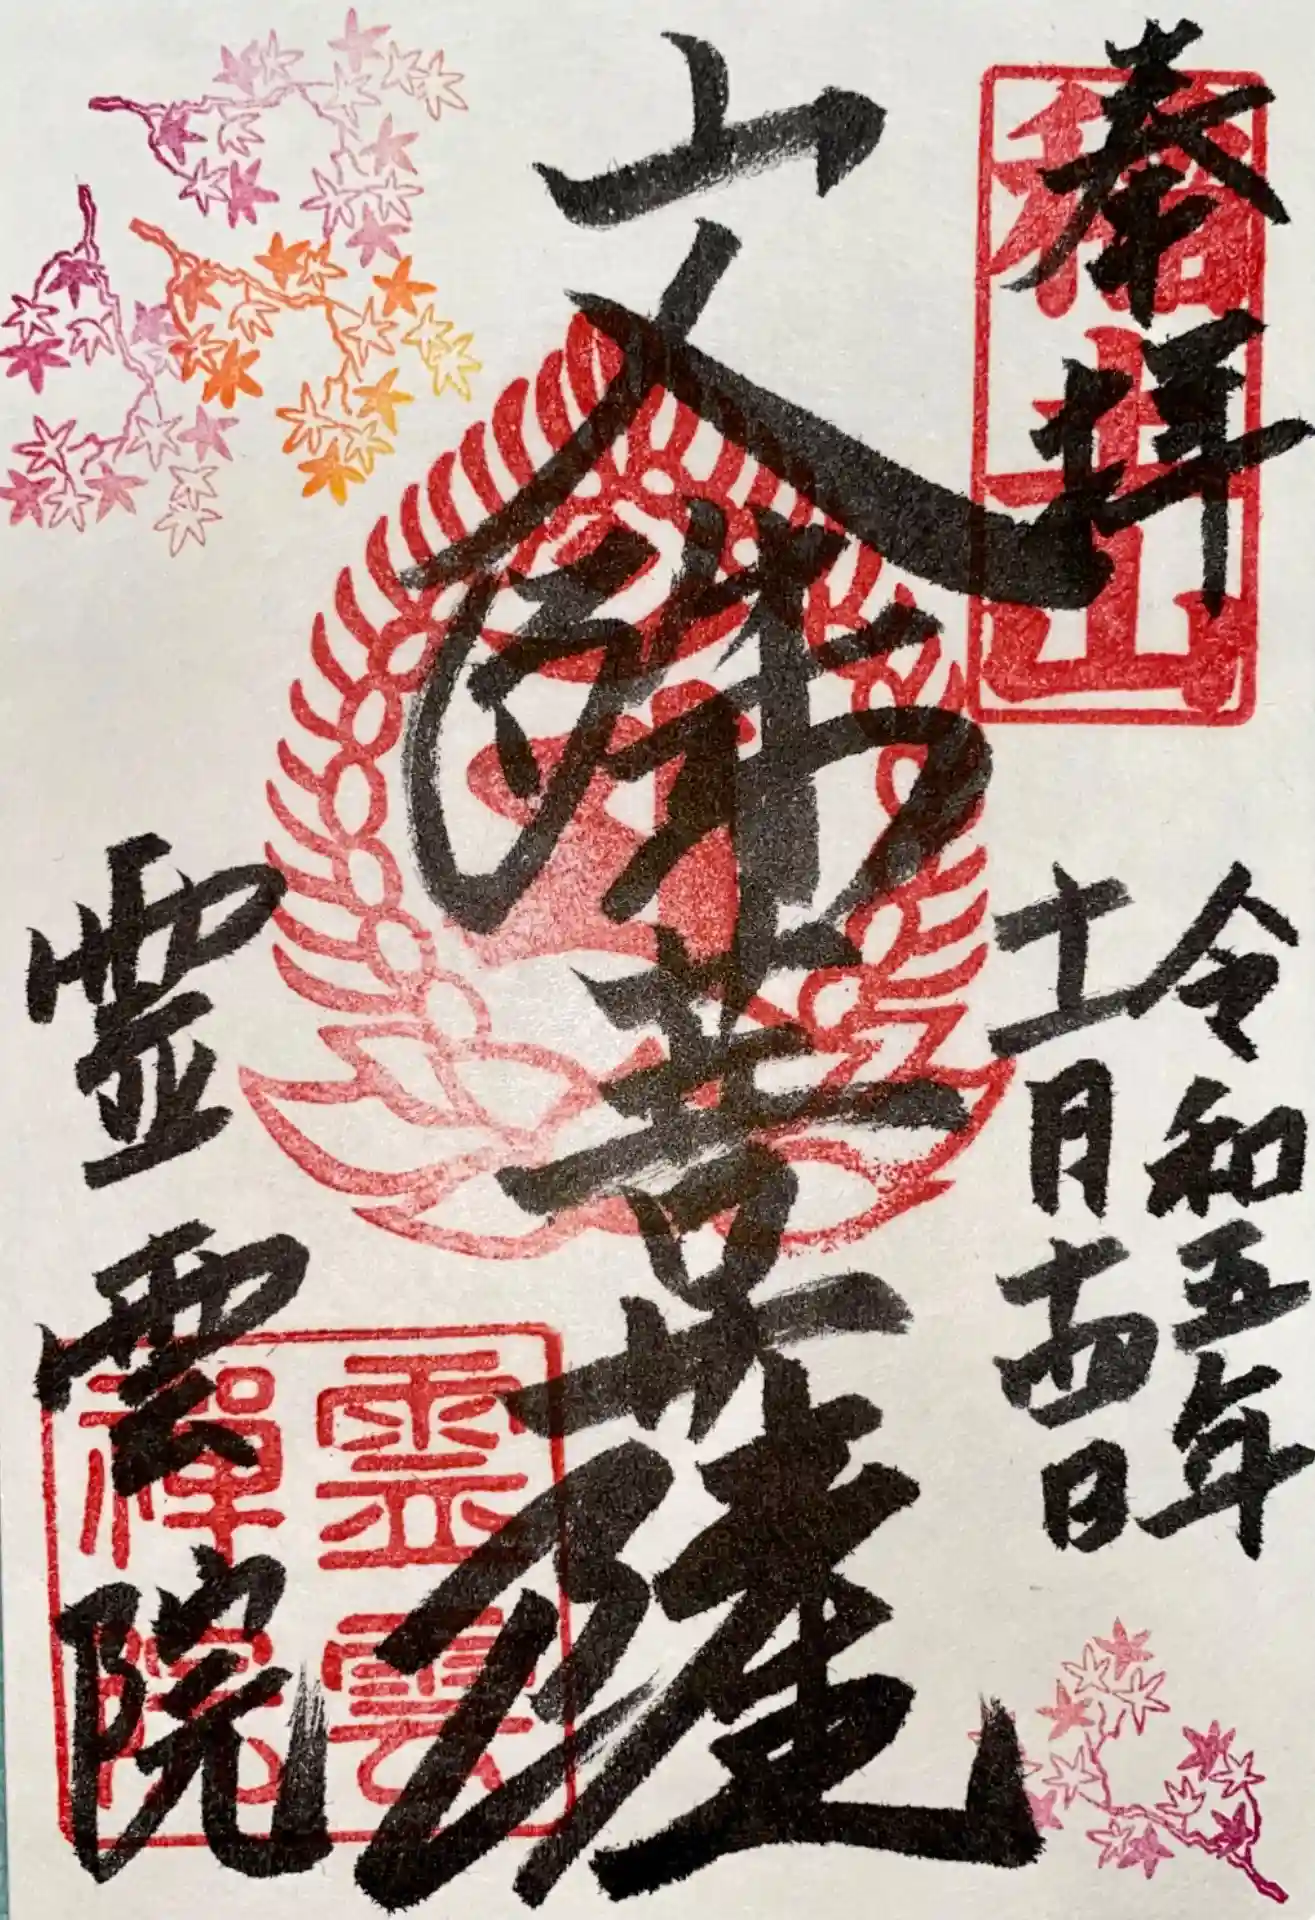 奉拝
令和五年
十一月十四日
文殊菩薩
霊雲院
霊雲
禪院